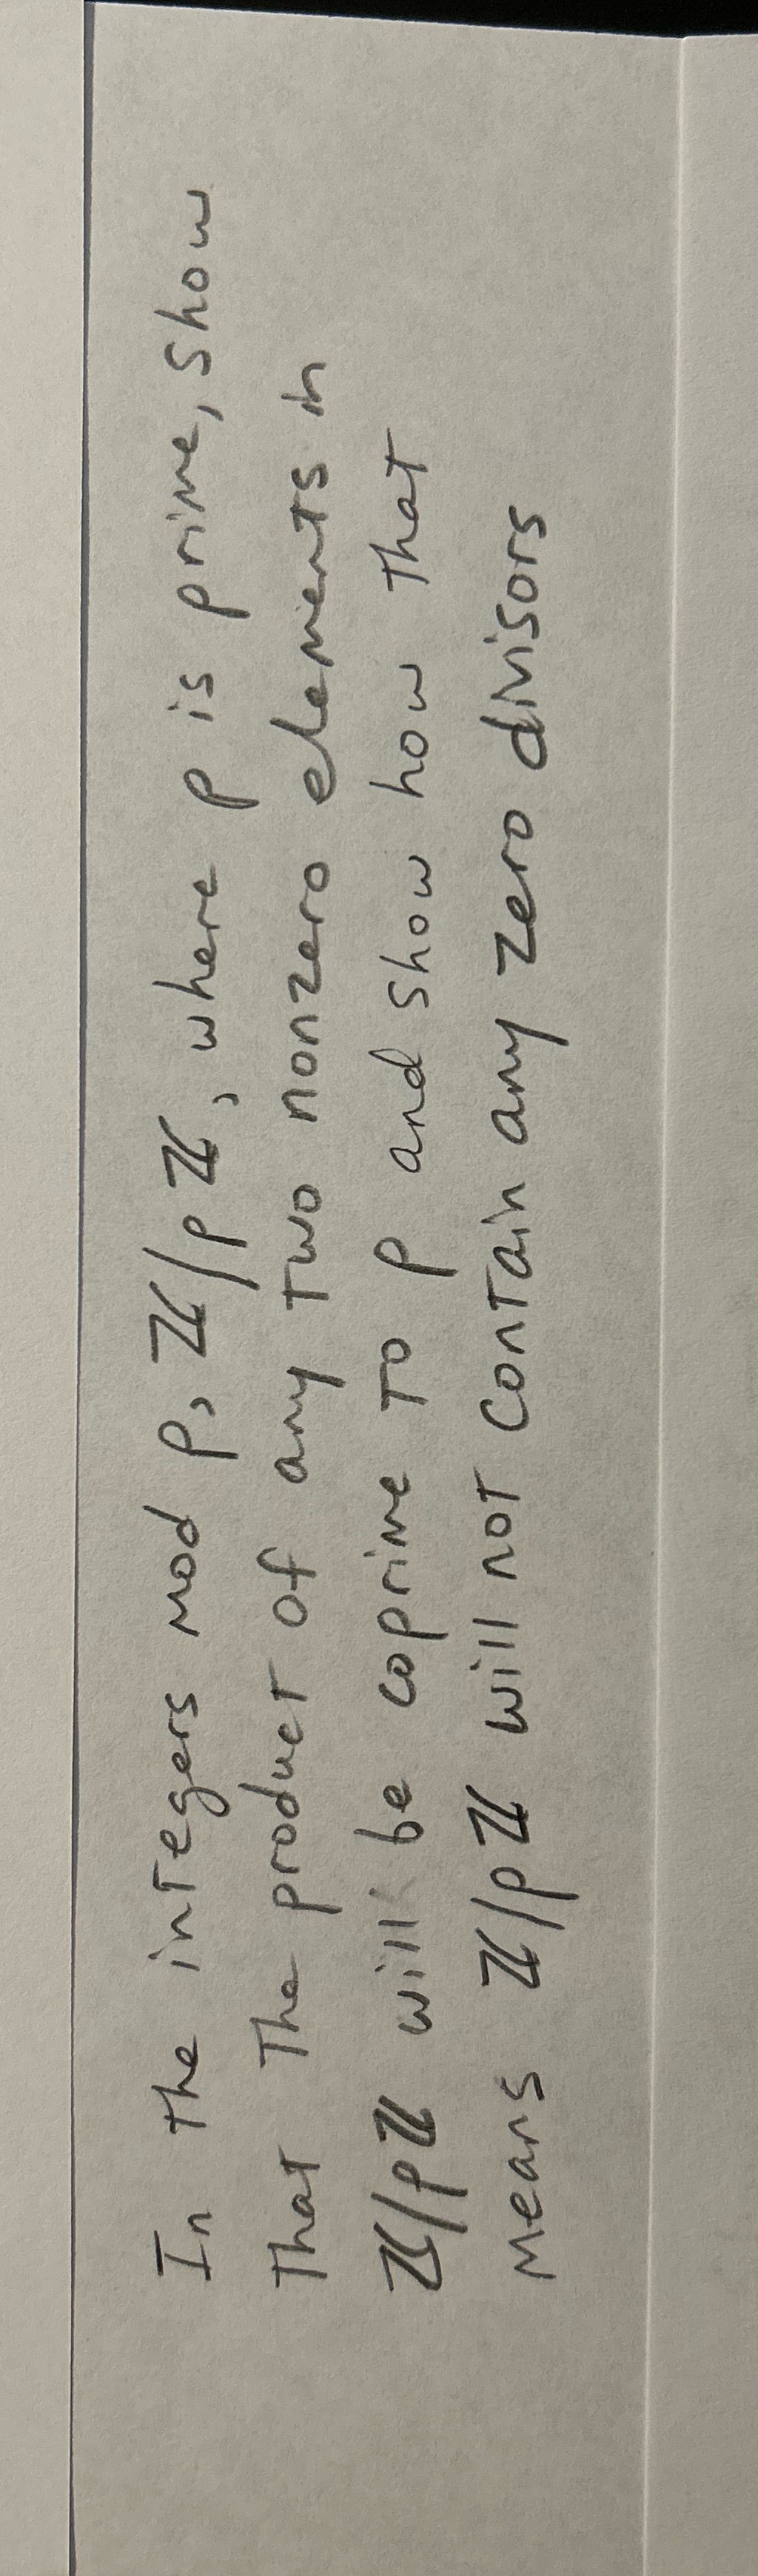 In the integers mod p, ℤ/pℤ, where p is prime, show
that the product of any two nonzero elements in
ℤ/pℤ will be coprime to p and show how that
means ℤ/pℤ will not contain any zero divisors